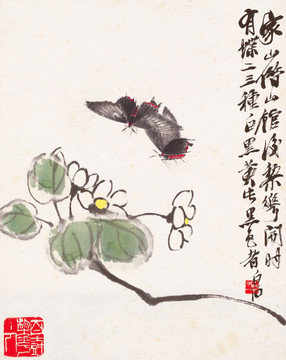 家山借山館後梨華開時
有蝶二三種白黑黃此黑色者白石